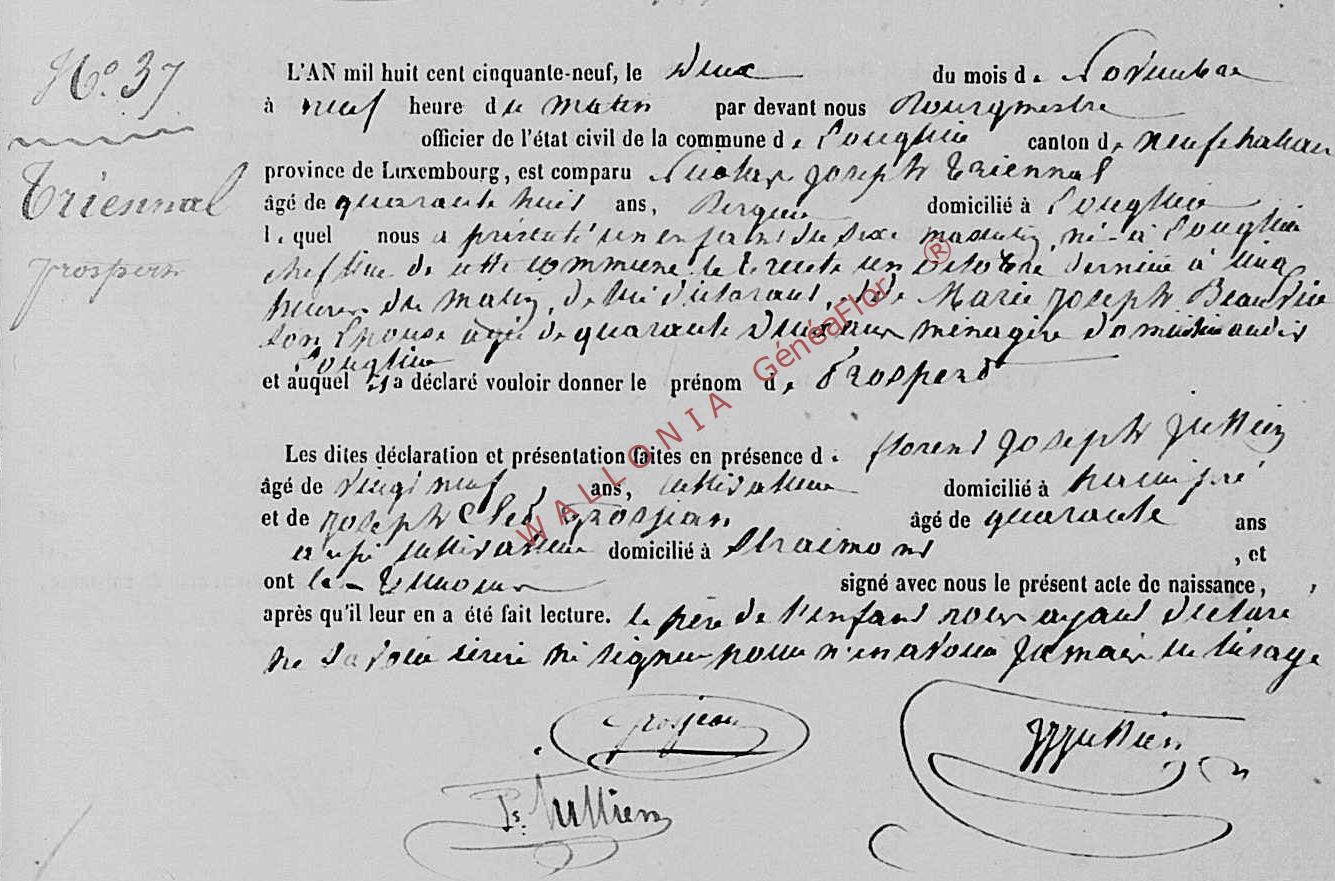 N° 37
Triennal
prospert
L'AN mil huit cent cinquante-neuf, le deux du mois de Novembre
à neuf heure du matin par devant nous Bourgmestre
officier de l'état civil de la commune de Longlier canton de neufchateau
province de Luxembourg, est comparu Nicolas joseph triennal
âgé de quarante huit ans, Berger domicilié à Longlier
lequel nous a présenté un enfant du sexe masculin, né à Longlier
chef lieu de cette commune le trente un octobre dernier à cinq
heures du matin, de lui déclarant, et de Marie joseph
son Epouse agée de quarante deux ans ménagère domiciliée audit
Longlier
et auquel il a déclaré vouloir donner le prénom de Prospert
Les dites déclaration et présentation faites en présence de florent joseph jullien
âgé de vingt neuf ans, cultivateur domicilié à
et de joseph Grosjean âgé de quarante ans
aussi cultivateur domicilié à Straimont, et
ont les témoins signé avec nous le présent acte de naissance,
après qu'il leur en a été fait lecture. le père de l'enfant nous ayant déclaré
ne savoir écrire ni signer pour n'en avoir jamais eu l'usage
Grosjean
jullien
Jullien
WALLONIA GénéaFlor ®